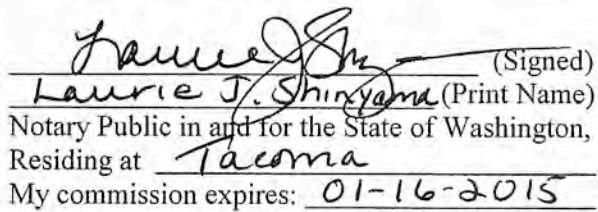 Laurie J Shi (Signed)
Laurie J. Shinyama (Print Name)
Notary Public in and for the State of Washington,
Residing at Tacoma
My commission expires: 01-16-2015